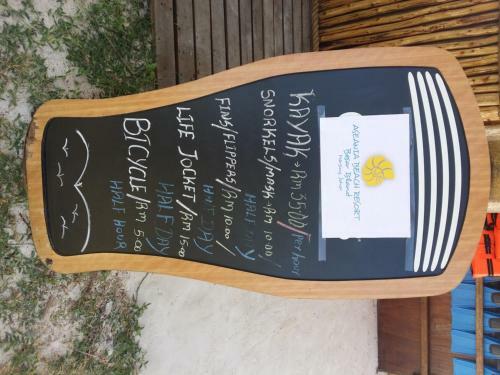 ASEANIA BEACH RESORT
Besar Island
Mersing, Johor
KAYAK → RM 35.00/Per hour
SNORKELS/MASK → RM 10.00/
HALF DAY
FINS/FLIPPERS/RM 10.00/
HALF DAY
LIFE JOCKET/RM 5.00
HALF DAY
BICYCLE/RM 5.00
HALF HOUR